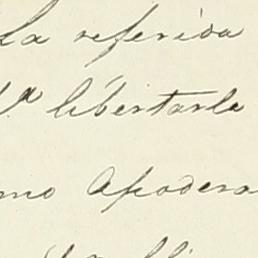 La referida
d.ª libertarla
mo Apodera